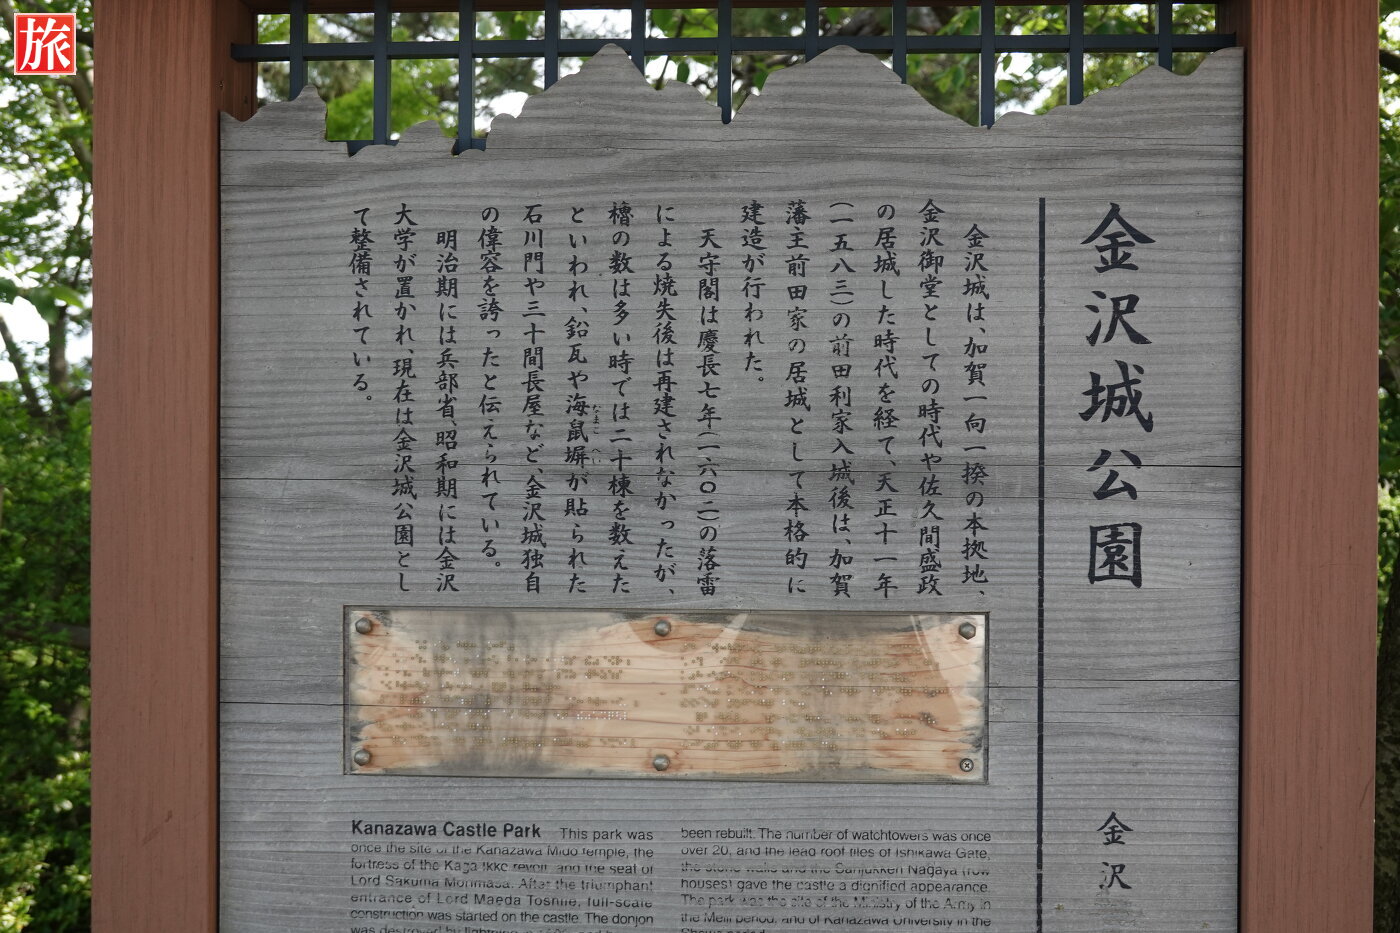 旅
金沢城公園
金沢城は、加賀一向一揆の本拠地、
金沢御堂としての時代や佐久間盛政
の居城した時代を経て、天正十一年
(一五八三)の前田利家入城後は、加賀
藩主前田家の居城として本格的に
建造が行われた。
天守閣は慶長七年(一六〇二)の落雷
による焼失後は再建されなかったが、
櫓の数は多い時では二十棟を数えた
といわれ、鉛瓦や海鼠塀が貼られた
なまこ へい
石川門や三十間長屋など、金沢城独自
の偉容を誇ったと伝えられている。
明治期には兵部省、昭和期には金沢
大学が置かれ、現在は金沢城公園とし
て整備されている。
金沢
Kanazawa Castle Park This park was
once the site of the Kanazawa Mido temple, the
fortress of the Kaga Ikko revolt, and the seat of
Lord Sakuma Morimasa. After the triumphant
entrance of Lord Maeda Toshiie, full-scale
construction was started on the castle. The donjon
was destroyed by lightning in
been rebuilt. The number of watchtowers was once
over 20, and the lead roof tiles of Ishikawa Gate,
the stone walls and the Sanjukken Nagaya (row
houses) gave the castle a dignified appearance.
The park was the site of the Ministry of the Army in
the Meiji period, and of Kanazawa University in the
Showa period.